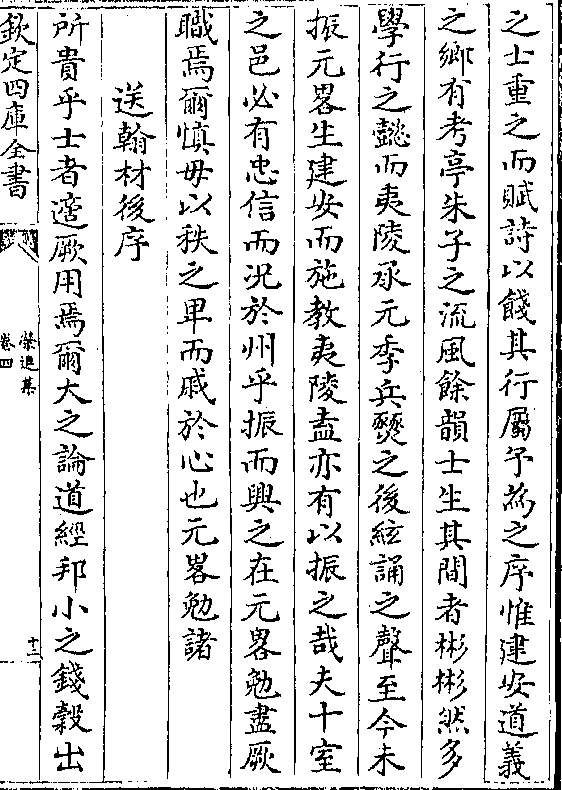 之士重之而賦詩以餞其行屬予為之序惟建安道義
之鄉有考亭朱子之流風餘韻士生其間者彬彬然多
學行之懿而夷陵承元季兵燹之後絃誦之聲至今未
振元畧生建安而施教夷陵盍亦有以振之哉夫十室
之邑必有忠信而況於州乎振而興之在元畧勉盡厥
職焉爾慎毋以秩之卑而戚於心也元畧勉諸
送翰材後序
所貴乎士者適厥用焉爾大之論道經邦小之錢穀出
欽定四庫全書
榮進集
卷四
十三